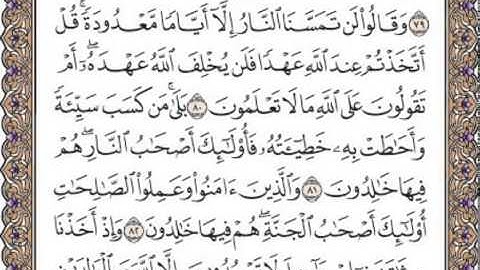 ٧٩ وَقَالُوا۟ لَن تَمَسَّنَا ٱلنَّارُ إِلَّآ أَيَّامًا مَّعْدُودَةً ۚ قُلْ
أَتَّخَذْتُمْ عِندَ ٱللَّهِ عَهْدًا فَلَن يُخْلِفَ ٱللَّهُ عَهْدَهُۥٓ ۖ أَمْ
تَقُولُونَ عَلَى ٱللَّهِ مَا لَا تَعْلَمُونَ ٨٠ بَلَىٰ مَن كَسَبَ سَيِّئَةً
وَأَحَٰطَتْ بِهِۦ خَطِيٓـَٔتُهُۥ فَأُو۟لَٰٓئِكَ أَصْحَٰبُ ٱلنَّارِ ۖ هُمْ
فِيهَا خَٰلِدُونَ ٨١ وَٱلَّذِينَ ءَامَنُوا۟ وَعَمِلُوا۟ ٱلصَّٰلِحَٰتِ
أُو۟لَٰٓئِكَ أَصْحَٰبُ ٱلْجَنَّةِ ۖ هُمْ فِيهَا خَٰلِدُونَ ٨٢ وَإِذْ أَخَذْنَا